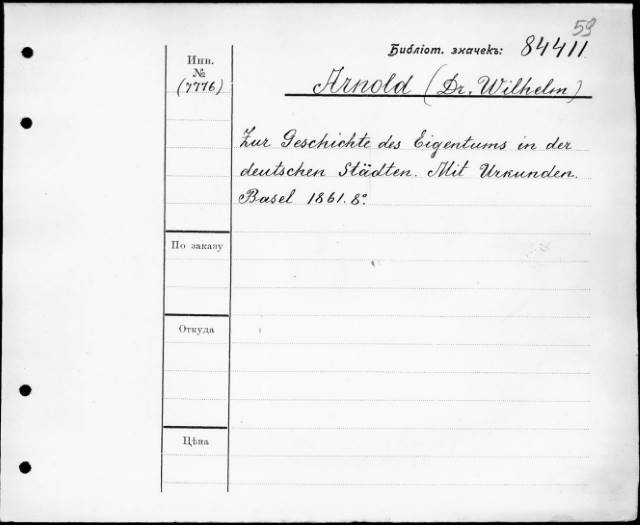 59
Библіот. значекъ: 84411
Инв.
№
(7776)
Arnold (Dr. Wilhelm)
Zur Geschichte des Eigentums in der
deutschen Städten. Mit Urkunden.
Basel 1861. 8°.
По заказу
Откуда
Цѣна